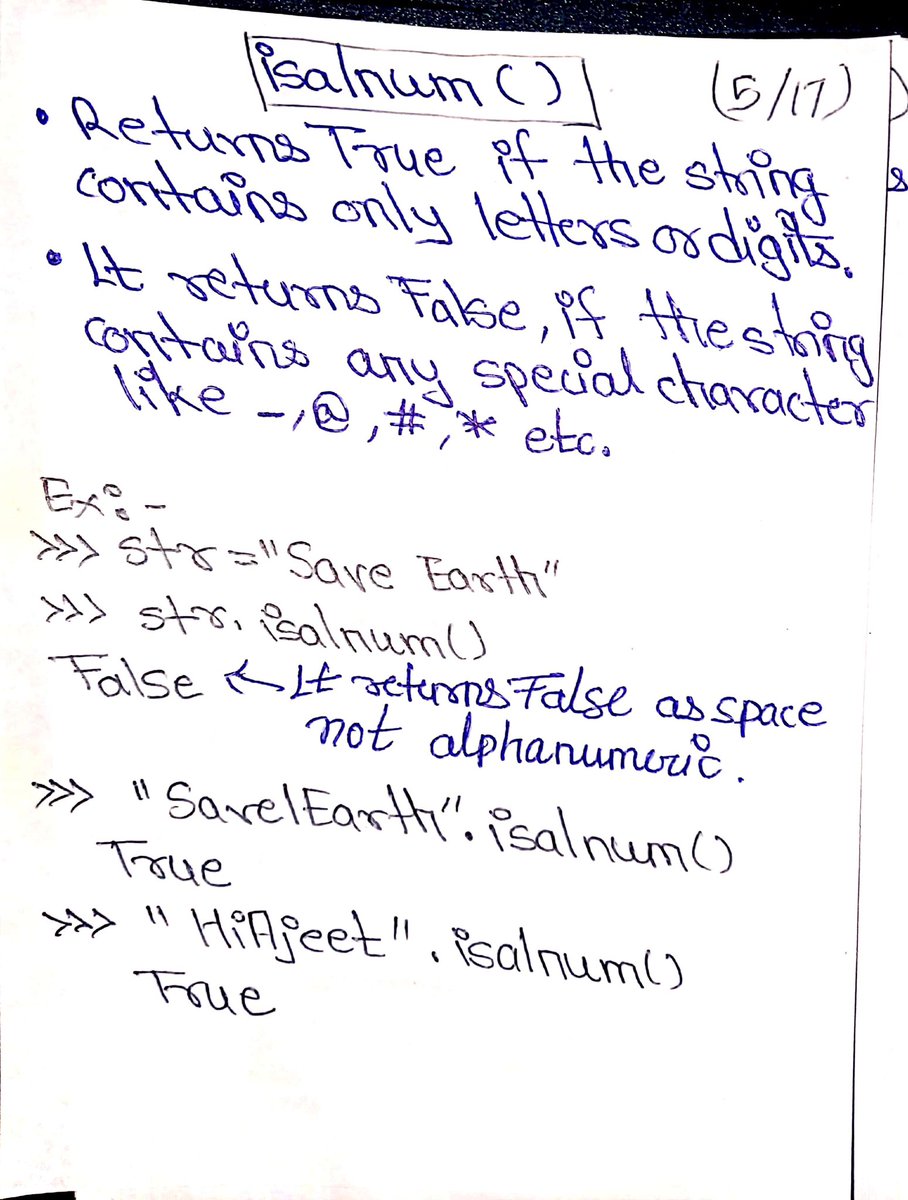 isalnum() (5/17)
• Returns True if the string
contains only letters or digits.
• It returns False, if the string
contains any special character
like -,@,#,* etc.
Ex:-
>>> str="Save Earth"
>>> str.isalnum()
False ← It returns False as space
not alphanumeric.
>>> "Save1Earth".isalnum()
True
>>> "HiAjeet".isalnum()
True